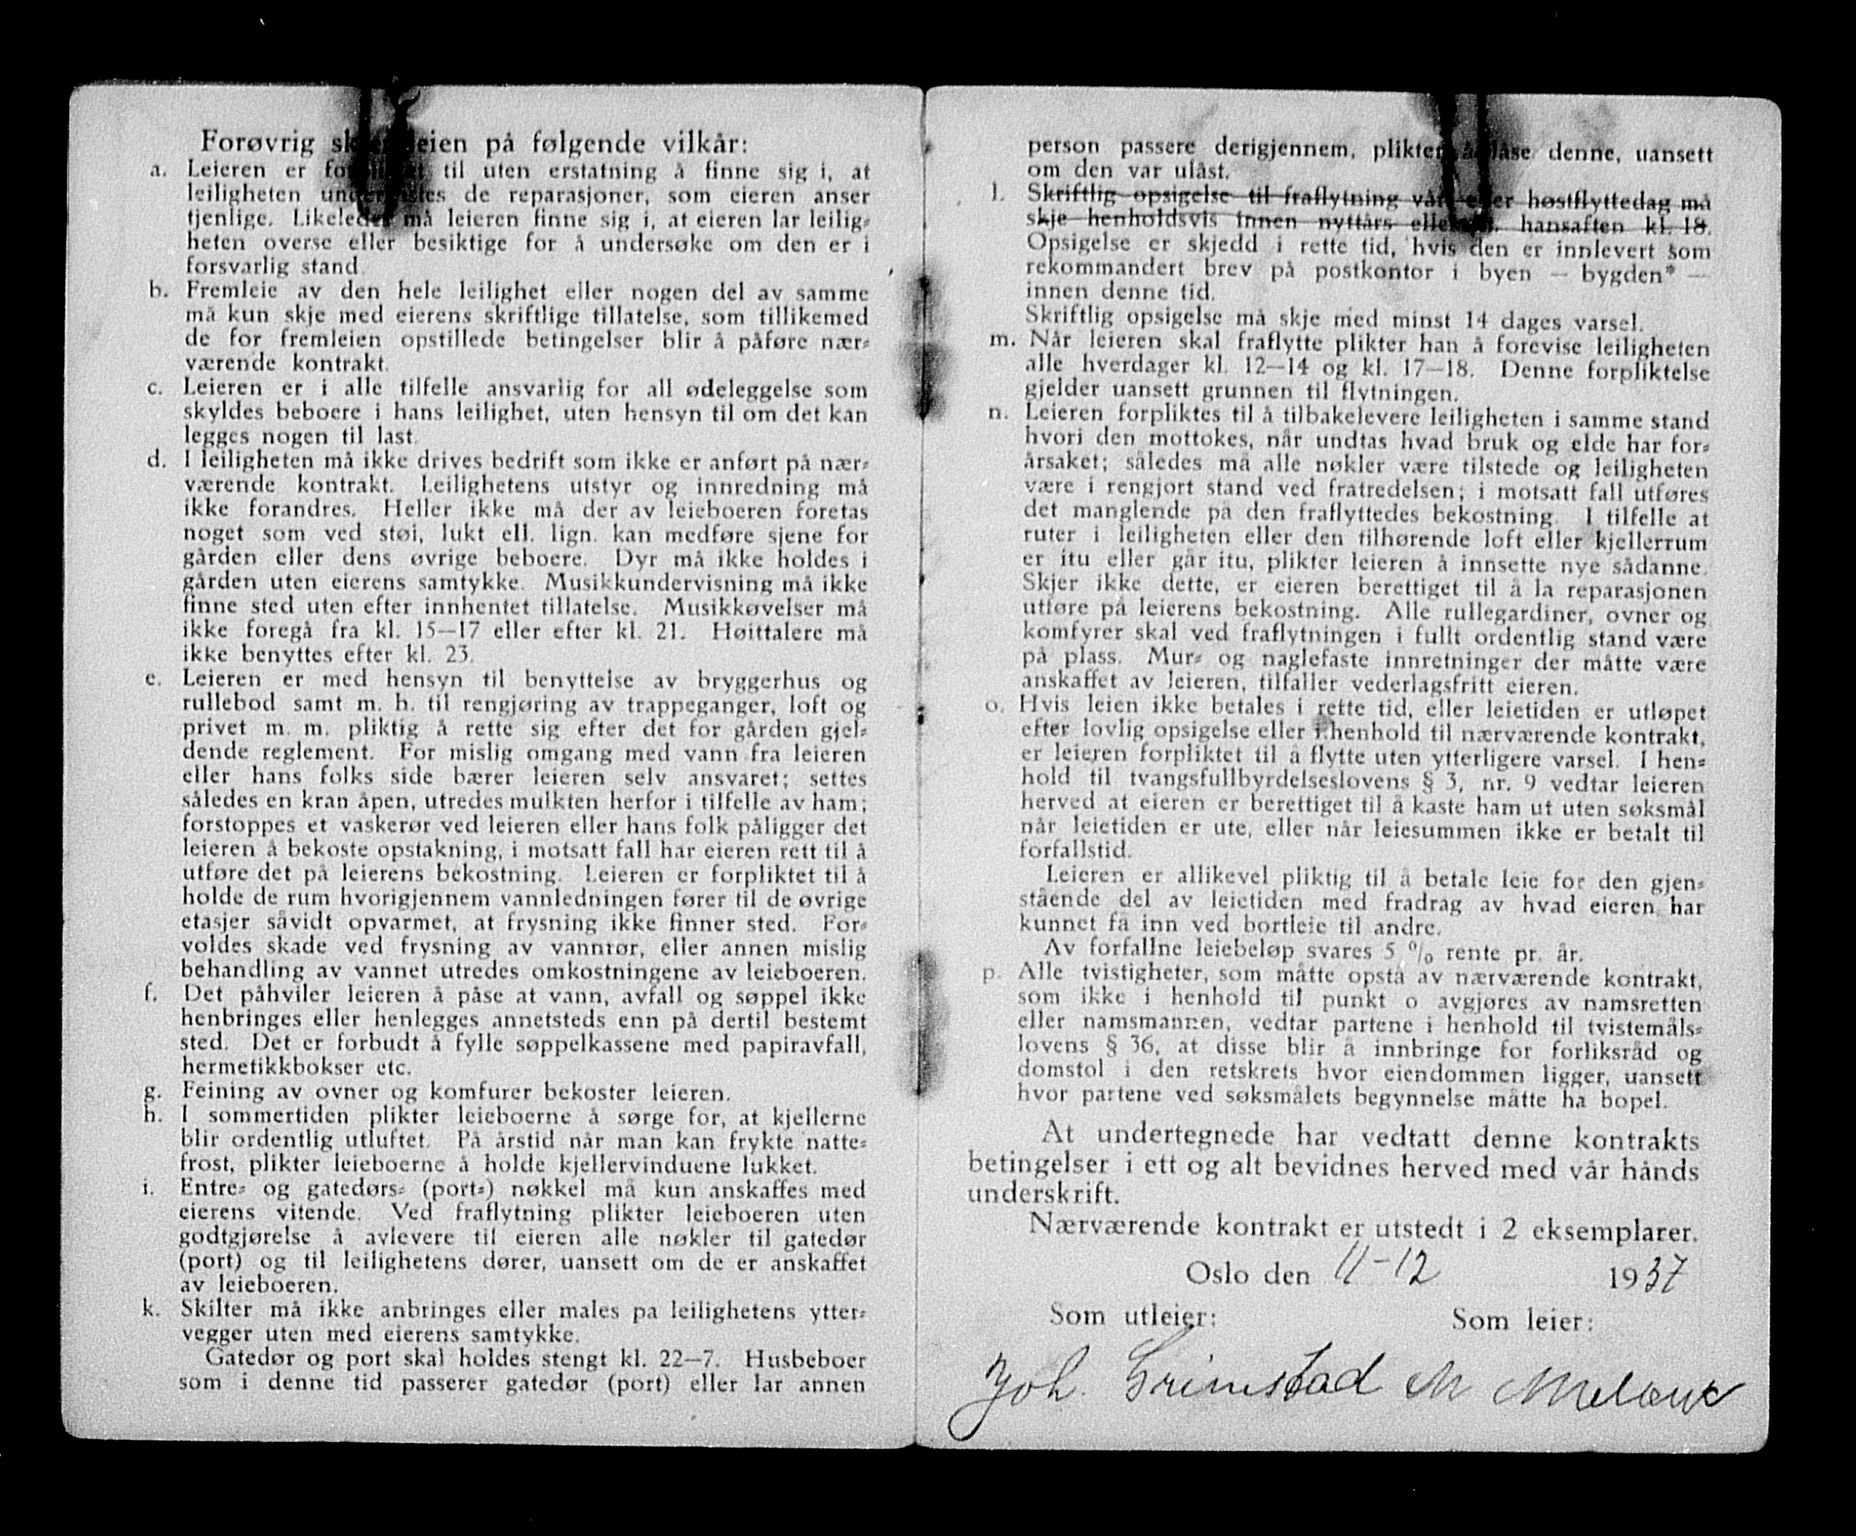 Forøvrig skjer leien på følgende vilkår:
a. Leieren er forpliktet til uten erstatning å finne sig i, at
leiligheten undergistes de reparasjoner, som eieren anser
tjenlige. Likeledes må leieren finne sig i, at eieren lar leilig-
heten overse eller besiktige for å undersøke om den er i
forsvarlig stand.
b. Fremleie av den hele leilighet eller nogen del av samme
må kun skje med eierens skriftlige tillatelse, som tillikemed
de for fremleien opstillede betingelser blir å påføre nær-
værende kontrakt.
c. Leieren er i alle tilfelle ansvarlig for all ødeleggelse som
skyldes beboere i hans leilighet, uten hensyn til om det kan
legges nogen til last.
d. I leiligheten må ikke drives bedrift som ikke er anført på nær-
værende kontrakt. Leilighetens utstyr og innredning må
ikke forandres. Heller ikke må der av leieboeren foretas
noget som ved støi, lukt ell. lign. kan medføre sjene for
gården eller dens øvrige beboere. Dyr må ikke holdes i
gården uten eierens samtykke. Musikkundervisning må ikke
finne sted uten efter innhentet tillatelse. Musikkøvelser må
ikke foregå fra kl. 15–17 eller efter kl. 21. Høittalere må
ikke benyttes efter kl. 23.
e. Leieren er med hensyn til benyttelse av bryggerhus og
rullebod samt m. h. til rengjøring av trappeganger, loft og
privet m. m. pliktig å rette sig efter det for gården gjel-
dende reglement. For mislig omgang med vann fra leieren
eller hans folks side bærer leieren selv ansvaret; settes
således en kran åpen, utredes mulkten herfor i tilfelle av ham;
forstoppes et vaskerør ved leieren eller hans folk påligger det
leieren å bekoste opstakning, i motsatt fall har eieren rett til å
utføre det på leierens bekostning. Leieren er forpliktet til å
holde de rum hvorigjennem vannledningen fører til de øvrige
etasjer såvidt opvarmet, at frysning ikke finner sted. For-
voldes skade ved frysning av vannrør, eller annen mislig
behandling av vannet utredes omkostningene av leieboeren.
f. Det påhviler leieren å påse at vann, avfall og søppel ikke
henbringes eller henlegges annetsteds enn på dertil bestemt
sted. Det er forbudt å fylle søppelkassene med papiravfall,
hermetikkbokser etc.
g. Feining av ovner og komfurer bekoster leieren.
h. I sommertiden plikter leieboerne å sørge for, at kjellerne
blir ordentlig utluftet. På årstid når man kan frykte natte-
frost, plikter leieboerne å holde kjellervinduene lukket.
i. Entre- og gatedørs- (port-) nøkkel må kun anskaffes med
eierens vitende. Ved fraflytning plikter leieboeren uten
godtgjørelse å avlevere til eieren alle nøkler til gatedør
(port) og til leilighetens dører, uansett om de er anskaffet
av leieboeren.
k. Skilter må ikke anbringes eller males pa leilighetens ytter-
vegger uten med eierens samtykke.
Gatedør og port skal holdes stengt kl. 22–7. Husbeboer
som i denne tid passerer gatedør (port) eller lar annen
person passere derigjennem, plikter å låse denne, uansett
om den var ulåst.
l. Skriftlig opsigelse til fraflytning vår- eller høstflyttedag må
skje henholdsvis innen nyttårs eller St. hansaften kl. 18.
Opsigelse er skjedd i rette tid, hvis den er innlevert som
rekommandert brev på postkontor i byen – bygden* –
innen denne tid.
Skriftlig opsigelse må skje med minst 14 dages varsel.
m. Når leieren skal fraflytte plikter han å forevise leiligheten
alle hverdager kl. 12–14 og kl. 17–18. Denne forpliktelse
gjelder uansett grunnen til flytningen.
n. Leieren forpliktes til å tilbakelevere leiligheten i samme stand
hvori den mottokes, når undtas hvad bruk og elde har for-
årsaket; således må alle nøkler være tilstede og leiligheten
være i rengjort stand ved fratredelsen; i motsatt fall utføres
det manglende på den fraflyttedes bekostning. I tilfelle at
ruter i leiligheten eller den tilhørende loft eller kjellerrum
er itu eller går itu, plikter leieren å innsette nye sådanne.
Skjer ikke dette, er eieren berettiget til å la reparasjonen
utføre på leierens bekostning. Alle rullegardiner, ovner og
komfyrer skal ved fraflytningen i fullt ordentlig stand være
på plass. Mur- og naglefaste innretninger der måtte være
anskaffet av leieren, tilfaller vederlagsfritt eieren.
o. Hvis leien ikke betales i rette tid, eller leietiden er utløpet
efter lovlig opsigelse eller i henhold til nærværende kontrakt,
er leieren forpliktet til å flytte uten ytterligere varsel. I hen-
hold til tvangsfullbyrdelseslovens § 3, nr. 9 vedtar leieren
herved at eieren er berettiget til å kaste ham ut uten søksmål
når leietiden er ute, eller når leiesummen ikke er betalt til
forfallstid.
Leieren er allikevel pliktig til å betale leie for den gjen-
stående del av leietiden med fradrag av hvad eieren har
kunnet få inn ved bortleie til andre.
Av forfallne leiebeløp svares 5 % rente pr. år.
p. Alle tvistigheter, som måtte opstå av nærværende kontrakt,
som ikke i henhold til punkt o avgjøres av namsretten
eller namsmannen, vedtar partene i henhold til tvistemåls-
lovens § 36, at disse blir å innbringe for forliksråd og
domstol i den retskrets hvor eiendommen ligger, uansett
hvor partene ved søksmålets begynnelse måtte ha bopel.
At undertegnede har vedtatt denne kontrakts
betingelser i ett og alt bevidnes herved med vår hånds
underskrift.
Nærværende kontrakt er utstedt i 2 eksemplarer.
Oslo den 11-12 1937
Som utleier: Som leier:
Joh. Grimstad M Melænk